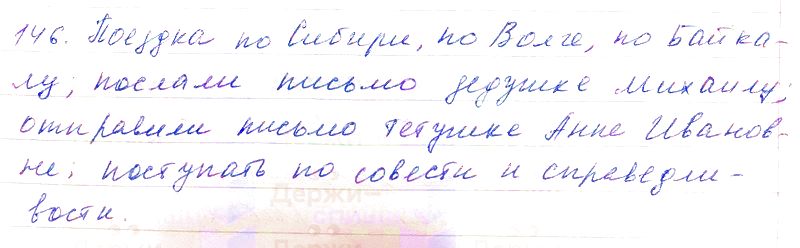 146. Поездка по Сибири, по Волге, по Байка-
лу; послали письмо дедушке Михаилу;
отправили письмо тетушке Анне Иванов-
не; поступать по совести и справедли-
вости.
Держи-